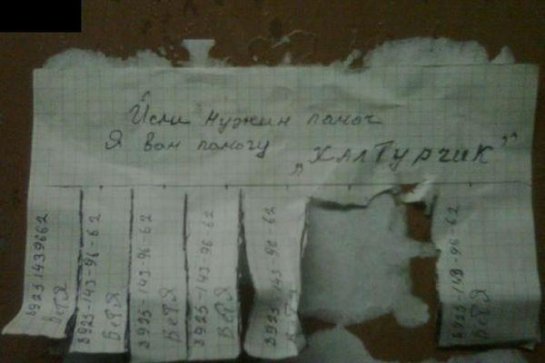 Исли нужин памоч
Я вам памогу „ХАЛТУРЧИК"
89251439662
ВЕТЯ
8925-143-96-62
ВЕТЯ
8925-143-96-62
ВЕТЯ
8925-143-96-62
ВЕТЯ
8925-143-96-62
8925-143-96-62
ВЕТЯ